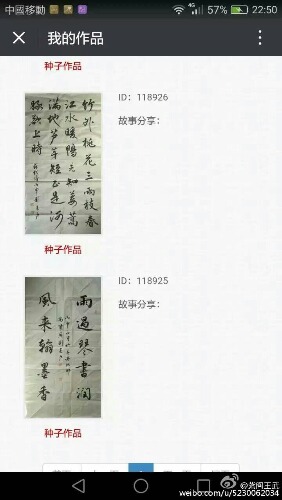 中國移動 4G 57% 22:50
我的作品
种子作品
竹外桃花三兩枝春
江水暖鴨先知蔞蒿
滿地芦芽短正是河
豚欲上時
ID：118926
故事分享：
种子作品
雨過琴書潤
風來翰墨香
ID：118925
故事分享：
种子作品
weibo.com/u/5230062034